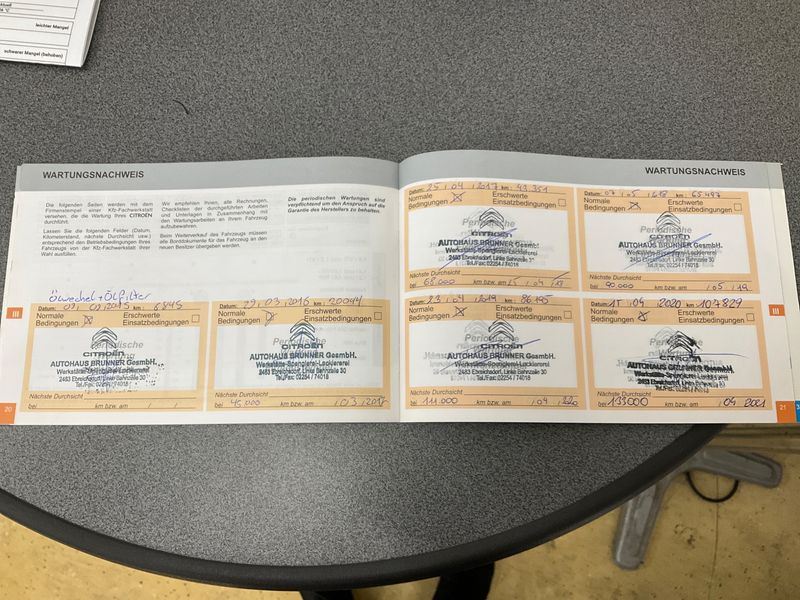 leichter Mangel
schwerer Mangel (behoben)
WARTUNGSNACHWEIS
Die folgenden Seiten werden mit dem
Firmenstempel einer Kfz-Fachwerkstatt
versehen, die die Wartung Ihres CITROËN
durchführt.
Lassen Sie die folgenden Felder (Datum,
Kilometerstand, nächste Durchsicht usw.)
entsprechend den Betriebsbedingungen Ihres
Fahrzeugs von der Kfz-Fachwerkstatt Ihrer
Wahl ausfüllen.
Wir empfehlen Ihnen, alle Rechnungen,
Checklisten der durchgeführten Arbeiten
und Unterlagen in Zusammenhang mit
den Wartungsarbeiten an Ihrem Fahrzeug
aufzubewahren.
Beim Weiterverkauf des Fahrzeugs müssen
alle Borddokumente für das Fahrzeug an den
neuen Besitzer übergeben werden.
Die periodischen Wartungen sind
verpflichtend um den Anspruch auf die
Garantie des Herstellers zu behalten.
Ölwechsel + Ölfilter
Datum: km: 6845
Normale Bedingungen
Erschwerte Einsatzbedingungen
CITROËN
AUTOHAUS BRUNNER GesmbH.
Werkstätte-Spenglerei-Lackiererei
2483 Ebreichsdorf, Linke Bahnzeile 30
Tel./Fax: 02254 / 74018
Nächste Durchsicht
bei km bzw. am / /
Datum: 29/03/2016 km: 20094
Normale Bedingungen
Erschwerte Einsatzbedingungen
CITROËN
AUTOHAUS BRUNNER GesmbH.
Werkstätte-Spenglerei-Lackiererei
2483 Ebreichsdorf, Linke Bahnzeile 30
Tel./Fax: 02254 / 74018
Nächste Durchsicht
bei 45.000 km bzw. am /03/2017
III
20
WARTUNGSNACHWEIS
Datum: 25/04/2017 km: 43.351
Normale Bedingungen
Erschwerte Einsatzbedingungen
Periodische
CITROËN
AUTOHAUS BRUNNER GesmbH.
Werkstätte-Spenglerei-Lackiererei
2483 Ebreichsdorf, Linke Bahnzeile 30
Tel./Fax: 02254 / 74018
Nächste Durchsicht
bei 68.000 km bzw. am 25/04/
Datum: 07/05/ km: 65497
Normale Bedingungen
Erschwerte Einsatzbedingungen
Periodische
CITROËN
AUTOHAUS BRUNNER GesmbH.
Werkstätte-Spenglerei-Lackiererei
2483 Ebreichsdorf, Linke Bahnzeile 30
Tel./Fax: 02254 / 74018
Nächste Durchsicht
bei 90.000 km bzw. am /05/19
Datum: 23/04/2019 km: 86195
Normale Bedingungen
Erschwerte Einsatzbedingungen
Periodische
CITROËN
AUTOHAUS BRUNNER GesmbH.
Werkstätte-Spenglerei-Lackiererei
2483 Ebreichsdorf, Linke Bahnzeile 30
Tel./Fax: 02254 / 74018
Nächste Durchsicht
bei 111.000 km bzw. am /04/2020
Datum: 15/04/2020 km: 107829
Normale Bedingungen
Erschwerte Einsatzbedingungen
Periodische
CITROËN
AUTOHAUS BRUNNER GesmbH.
Werkstätte-Spenglerei-Lackiererei
2483 Ebreichsdorf, Linke Bahnzeile 30
Tel./Fax: 02254 / 74018
Nächste Durchsicht
bei 133000 km bzw. am /04/2021
III
21